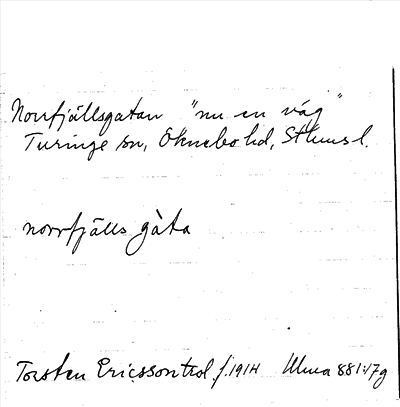 Norrfjällsgatan "nu en väg"
Turinge sn, Öknebo hd, Sthms l.
norrfjälls gàta
Torsten Ericsson f. 1914 Uma 881:17g